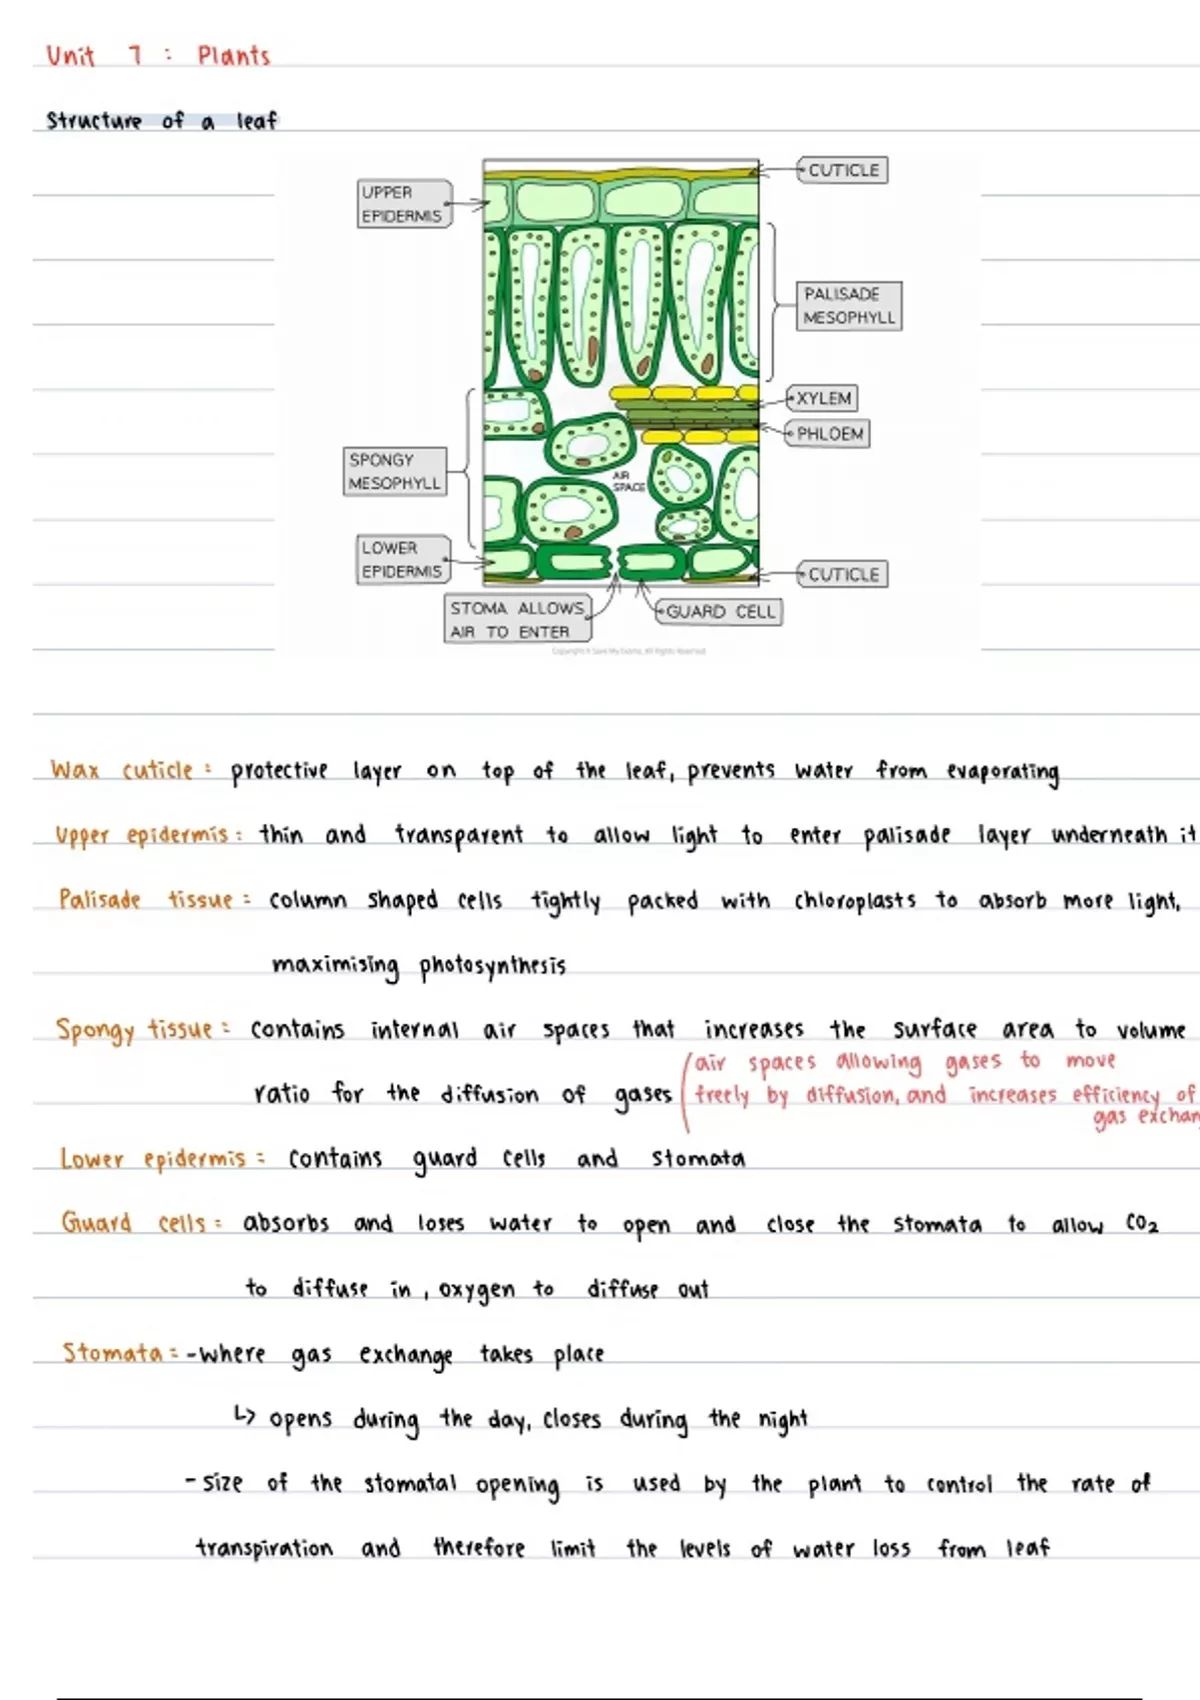 Unit 7 : Plants
Structure of a leaf
CUTICLE
UPPER
EPIDERMIS
PALISADE
MESOPHYLL
XYLEM
PHLOEM
SPONGY
MESOPHYLL
AIR
SPACE
LOWER
EPIDERMIS
CUTICLE
STOMA ALLOWS
AIR TO ENTER
GUARD CELL
Copyright © Save My Exams. All Rights Reserved
Wax cuticle : protective layer on top of the leaf, prevents water from evaporating
Upper epidermis : thin and transparent to allow light to enter palisade layer underneath it
Palisade tissue : column shaped cells tightly packed with chloroplasts to absorb more light,
maximising photosynthesis
Spongy tissue : contains internal air spaces that increases the surface area to volume
air spaces allowing gases to move
ratio for the diffusion of gases
freely by diffusion, and increases efficiency of
gas exchan
Lower epidermis : contains guard cells and stomata
Guard cells : absorbs and loses water to open and close the stomata to allow CO₂
to diffuse in, oxygen to diffuse out
Stomata : - where gas exchange takes place
↳ opens during the day, closes during the night
- size of the stomatal opening is used by the plant to control the rate of
transpiration and therefore limit the levels of water loss from leaf